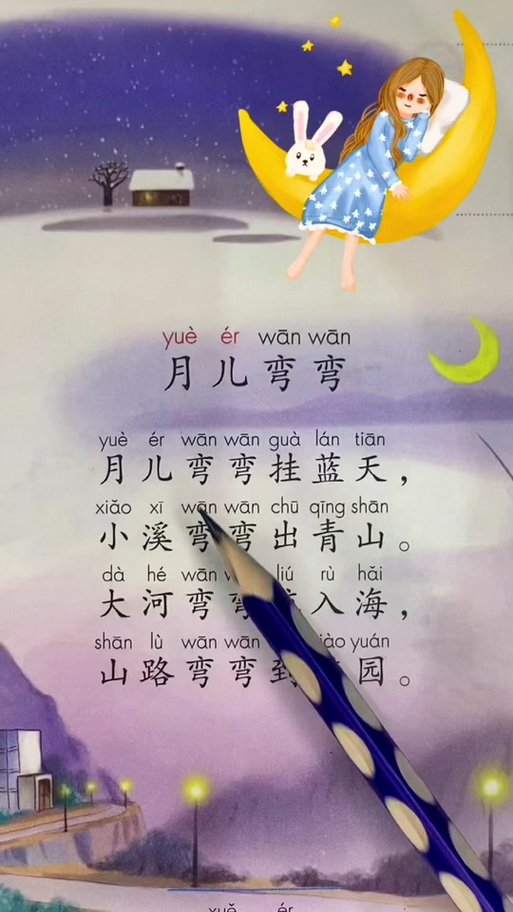 yuè ér wān wān
月儿弯弯
yuè ér wān wān guà lán tiān
月儿弯弯挂蓝天，
xiǎo xī wān wān chū qīng shān
小溪弯弯出青山。
dà hé wān liú rù hǎi
大河弯弯入海，
shān lù wān wān yuán
山路弯弯到园。
xuě ér